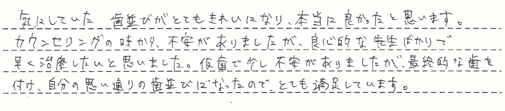 気にしていた 歯並びがとてもきれいになり、本当に良かったと思います。
カウンセリングの時から、不安がありましたが、良心的な先生ばかりで
早く治療したいと思いました。仮歯で少し不安がありましたが、最終的な歯を
付け、自分の思い通りの歯並びになったので、とても満足しています。